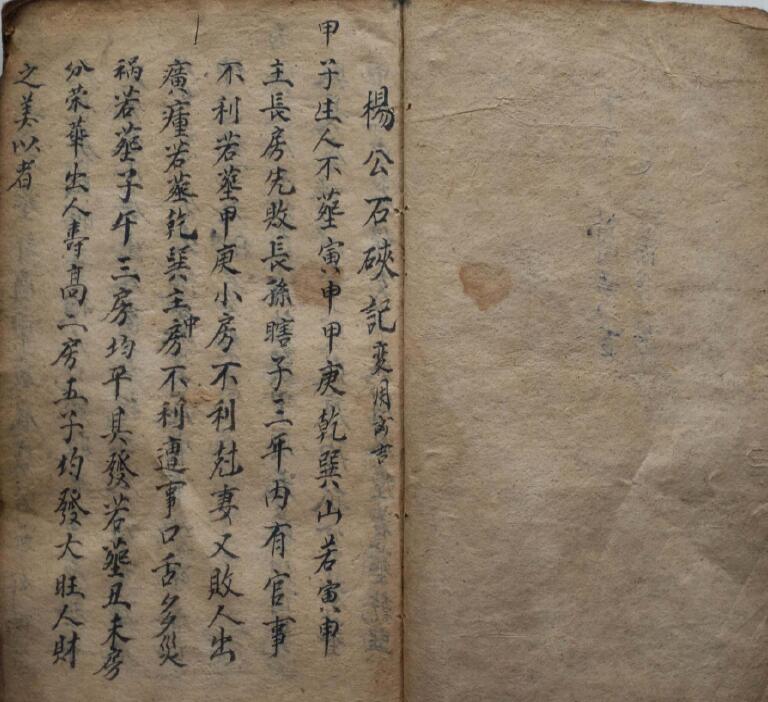 楊公石硤記
甲子生人不葬寅申甲庚乾巽山若寅申
主長房先敗長孫瞎子三年內有官事
不利若葬甲庚小房不利尅妻又敗人出
癀瘇若葬乾巽主中房不利遭事口舌多災
禍若葬子午三房均平具發若葬丑未房
分荣華出人壽高二房五子均發大旺人財
之美以者